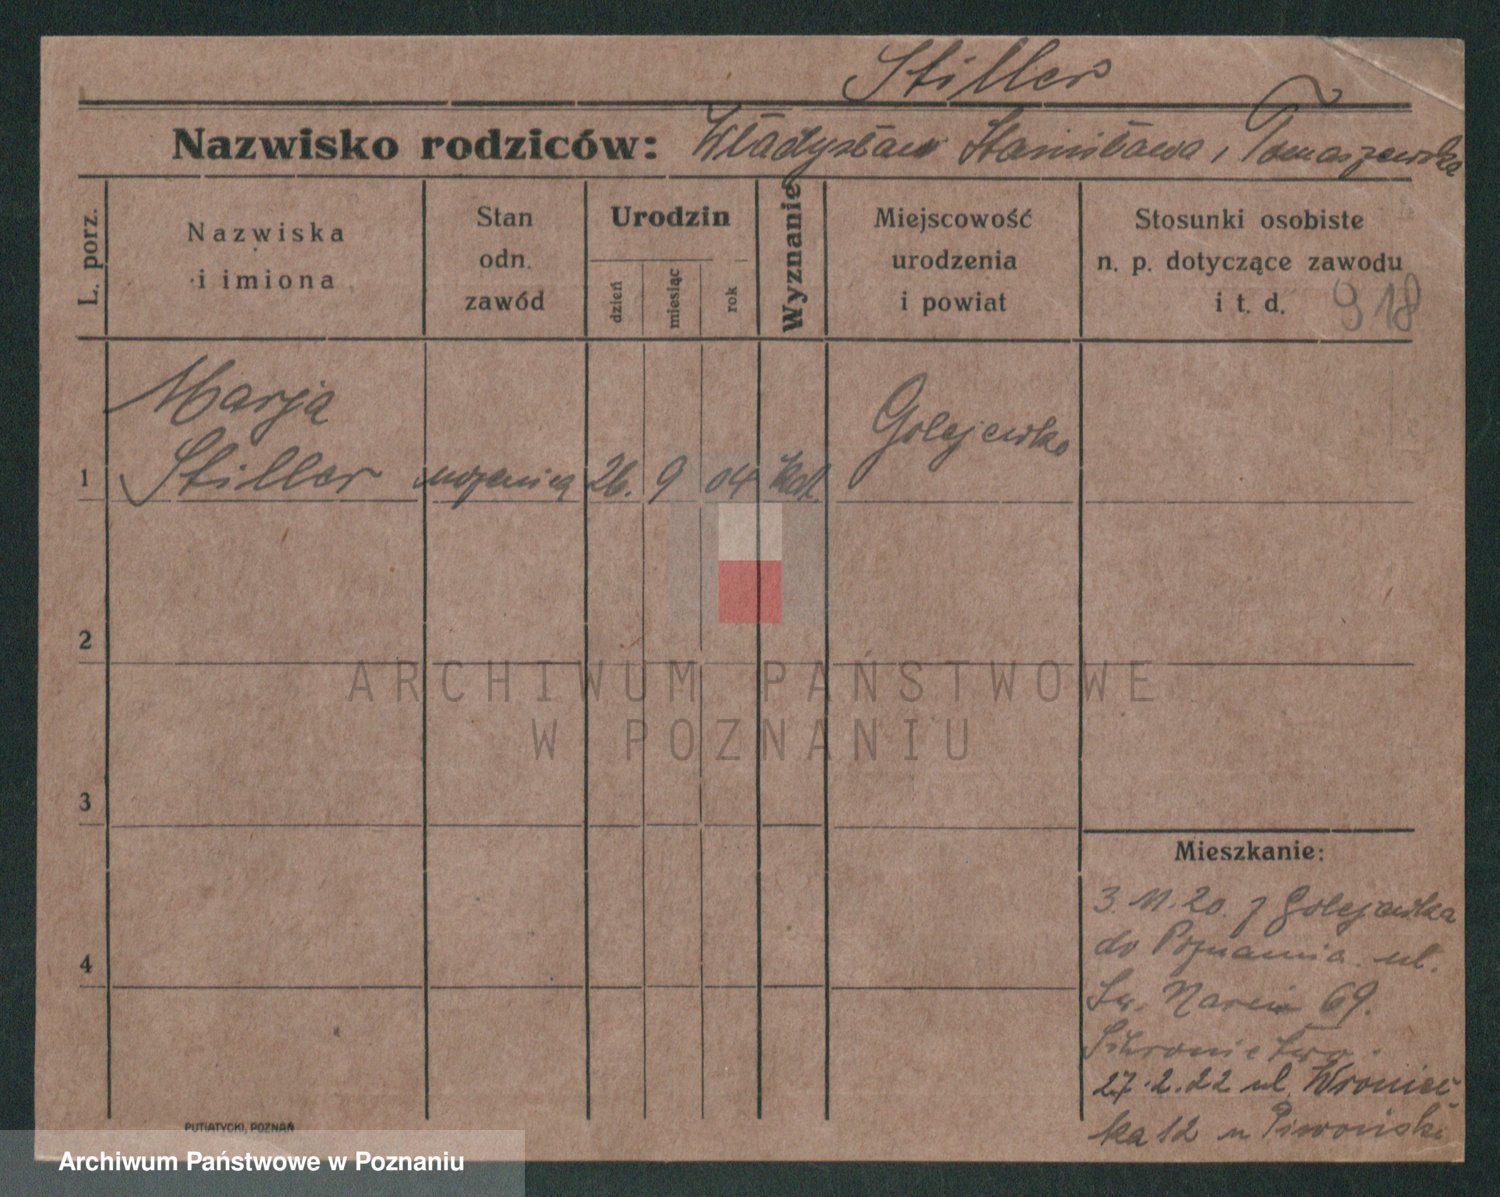 Stiller
Nazwisko rodziców: Władysław Stanisława, Tomaszewska
L. porz.
Nazwiska
i imiona
Stan
odn.
zawód
Urodzin
dzień
miesiąc
rok
Wyznanie
Miejscowość
urodzenia
i powiat
Stosunki osobiste
n. p. dotyczące zawodu
i t. d. 918
Marja
1 Stiller uczenica 26. 9 04 kat Golejewko
2
3
4
Mieszkanie:
3.11.20. z Golejewka
do Poznania. ul.
Św. Marcin 69.
27.2.22 ul. Wroniec
ka 12 u
PUTIATYCKI, POZNAŃ
ARCHIWUM PAŃSTWOWE
W POZNANIU
Archiwum Państwowe w Poznaniu